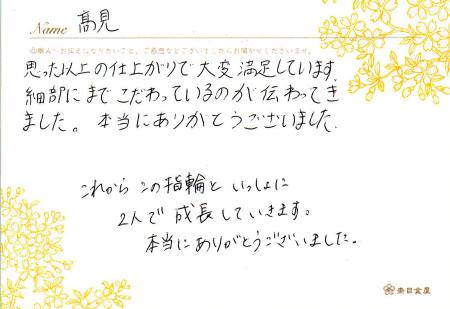 Name 髙見
◎職人へお伝えになりたいこと、ご感想などございましたらお聞かせくださいませ。
思った以上の仕上がりで大変満足しています。
細部にまでこだわっているのが伝わってき
ました。本当にありがとうございました。
これからこの指輪といっしょに
2人で成長していきます。
本当にありがとうございました。
杢目金屋